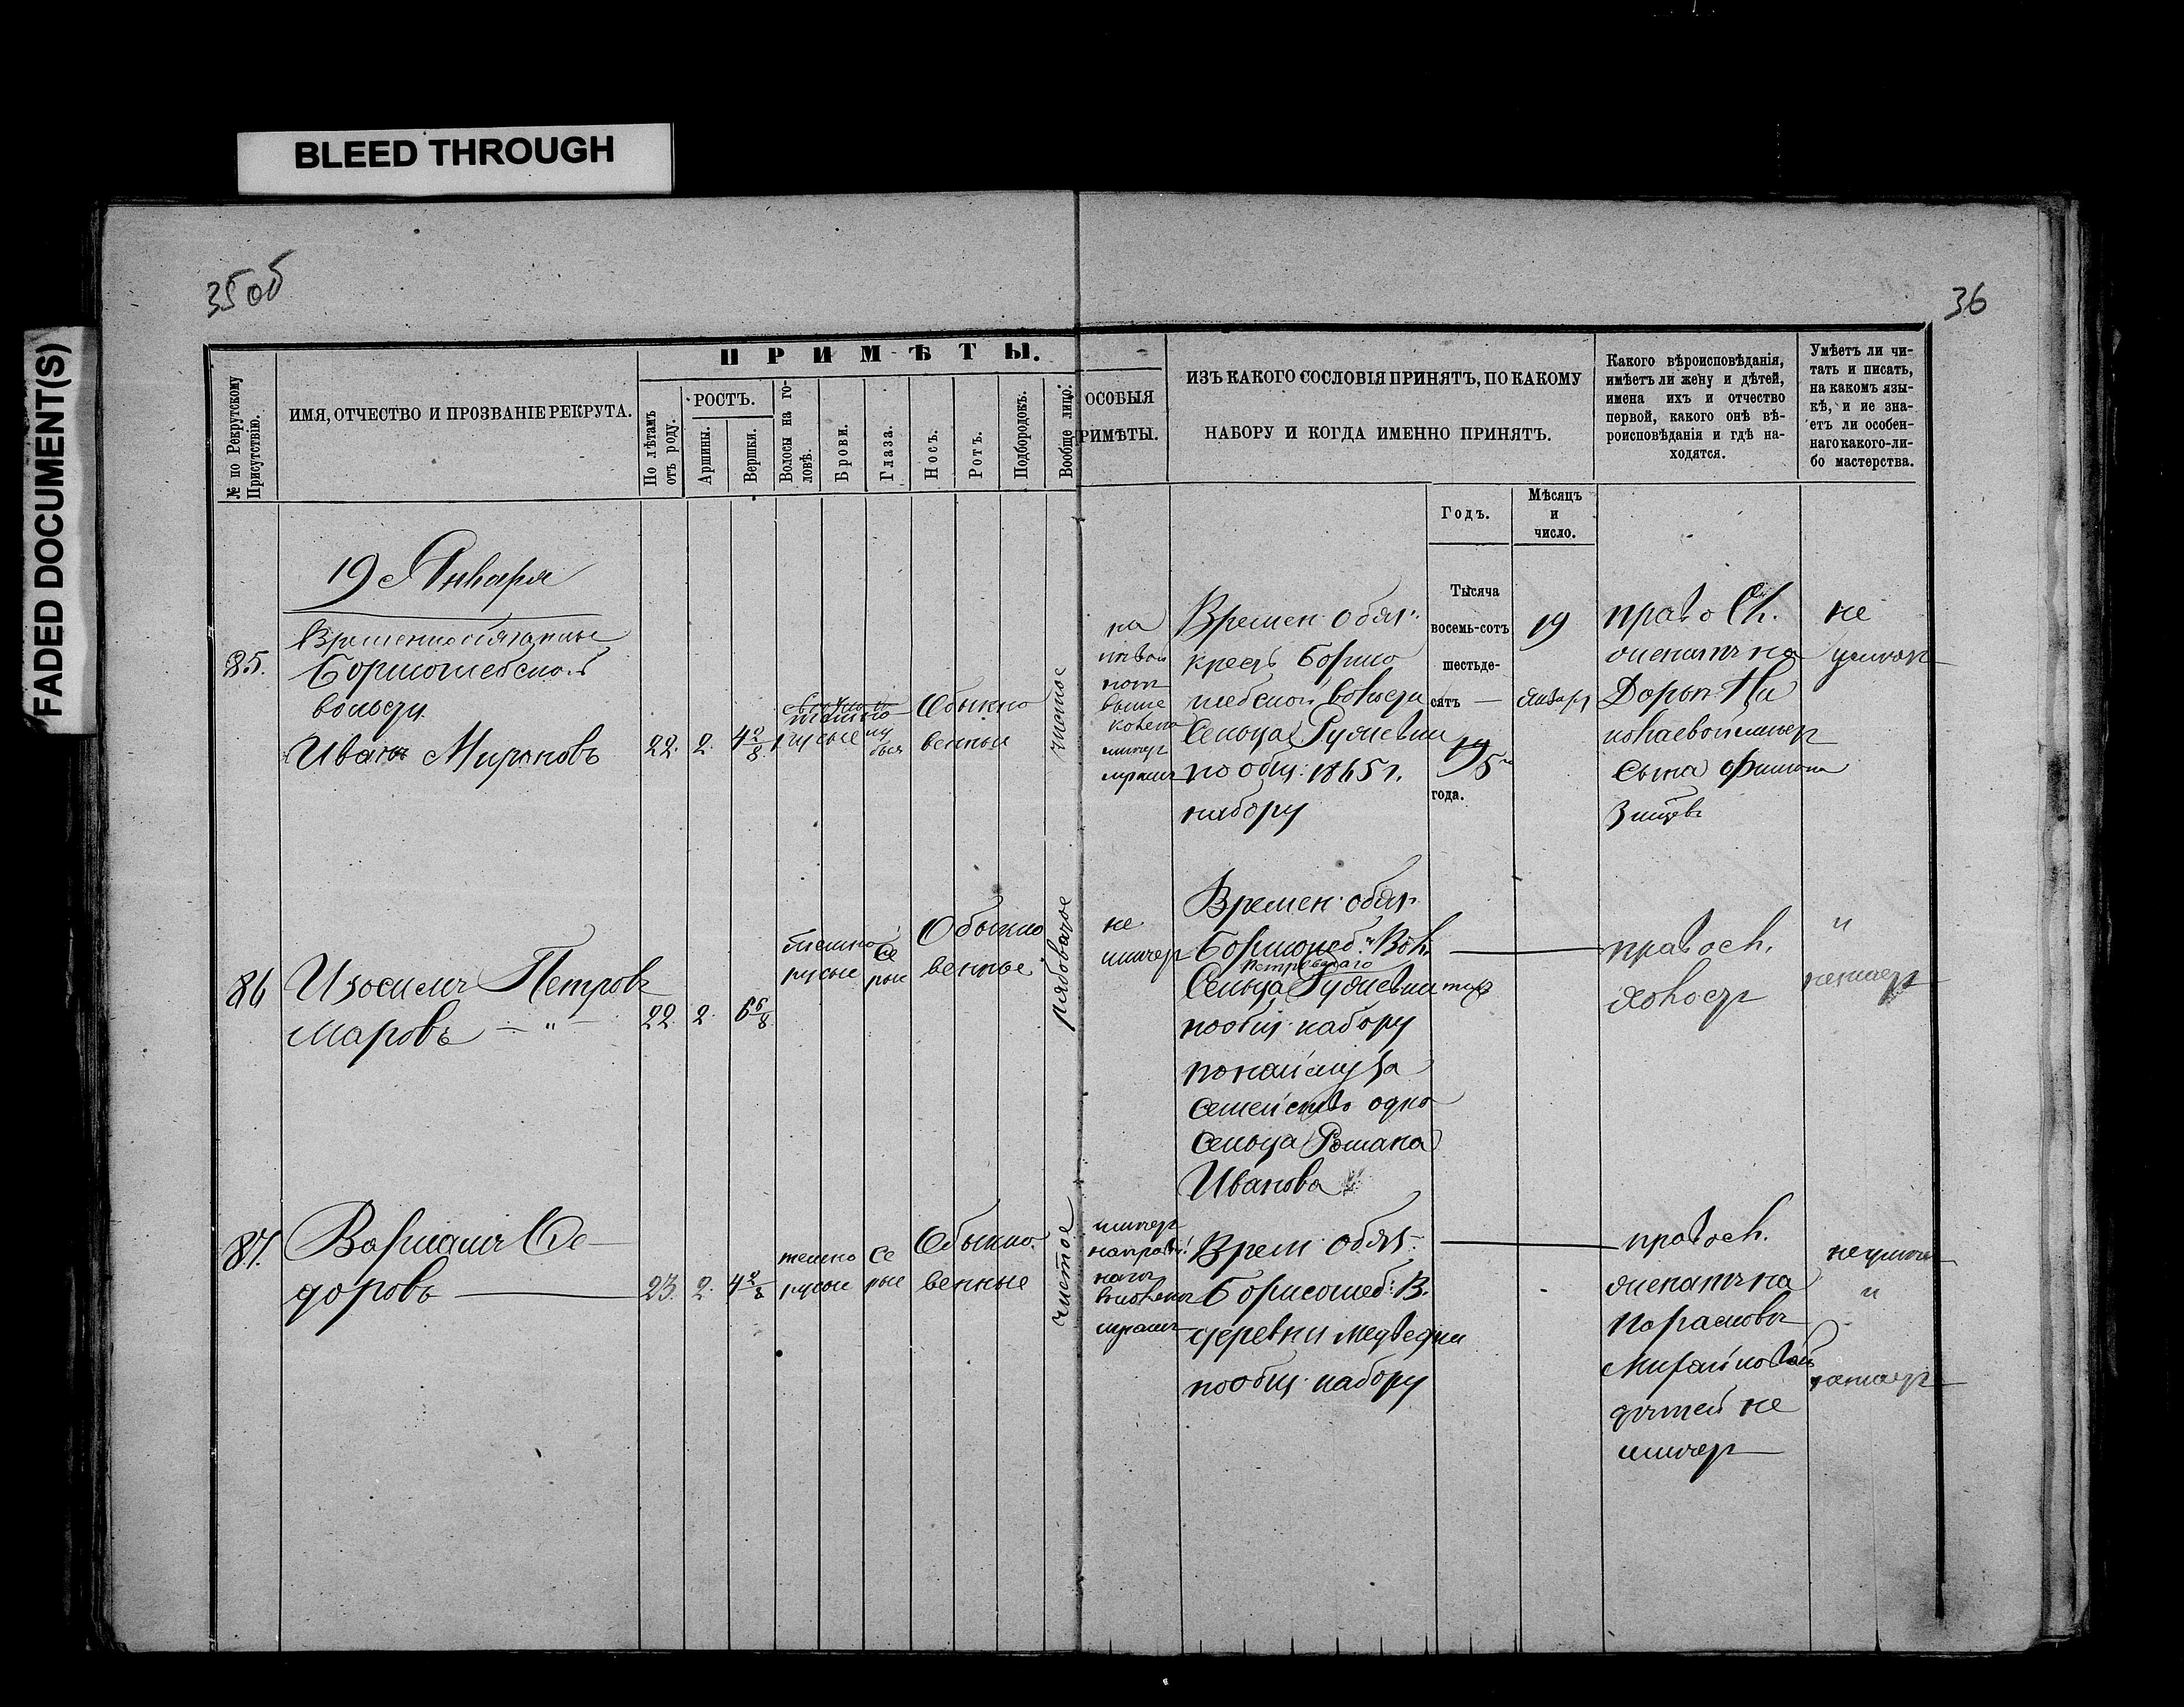 BLEED THROUGH
FADED DOCUMENT(S)
35 об
36
ПРИМѢТЫ.
№ по Рекрутскому Присутствію.
ИМЯ, ОТЧЕСТВО И ПРОЗВАНІЕ РЕКРУТА.
По лѣтамъ отъ роду.
РОСТЪ.
Аршины.
Вершки.
Волосы на головѣ.
Брови.
Глаза.
Носъ.
Ротъ.
Подбородокъ.
Вообще лицо.
ОСОБЫЯ
РИМѢТЫ.
ИЗЪ КАКОГО СОСЛОВІЯ ПРИНЯТЪ, ПО КАКОМУ
НАБОРУ И КОГДА ИМЕННО ПРИНЯТЪ.
Годъ.
Мѣсяцъ
и
число.
Какого вѣроисповѣданія,
имѣетъ ли жену и дѣтей,
имена ихъ и отчество
первой, какого онѣ вѣ-
роисповѣданія и гдѣ на-
ходятся.
Умѣетъ ли чи-
тать и писать,
на какомъ язы-
кѣ, и не зна-
етъ ли особен-
наго какого-ли-
бо мастерства.
19 Января
85.
волости
Иванъ Мироновъ
22. 2. 4 2/8
русые
Обыкно
венные
чистое
на
выше
колена
имеет
шрам
Времен. обяз.
крест. Борисо
глебской волости
Сельца
по общ. 1865 г.
набору
Тысяча
восемь-сотъ
шестьде-
сятъ
5
года.
19
Января
правосл.
женат на
Дарьи Ни
сына
не
86
Изосим Петров
Маров — " —
22. 2. 6 6/8
темно
русые
Се
рые
Обыкно
венные
рябоватое
не
имеет
Времен. обяз.
Борисоглеб. Вол.
Сельца
по общ. набору
по найму за
семейство одно
сельца Романа
Иванова
правосл.
холост
"
87.
Варлам Фе-
доровъ
23. 2. 4 2/8
темно
русые
Се
рые
Обыкно
венные
чистое
имеет
шрам
Врем. обяз.
Борисоглеб: В.
деревни Медведки
по общ. набору
правосл.
женат на
Парасковье
детей не
имеет
"